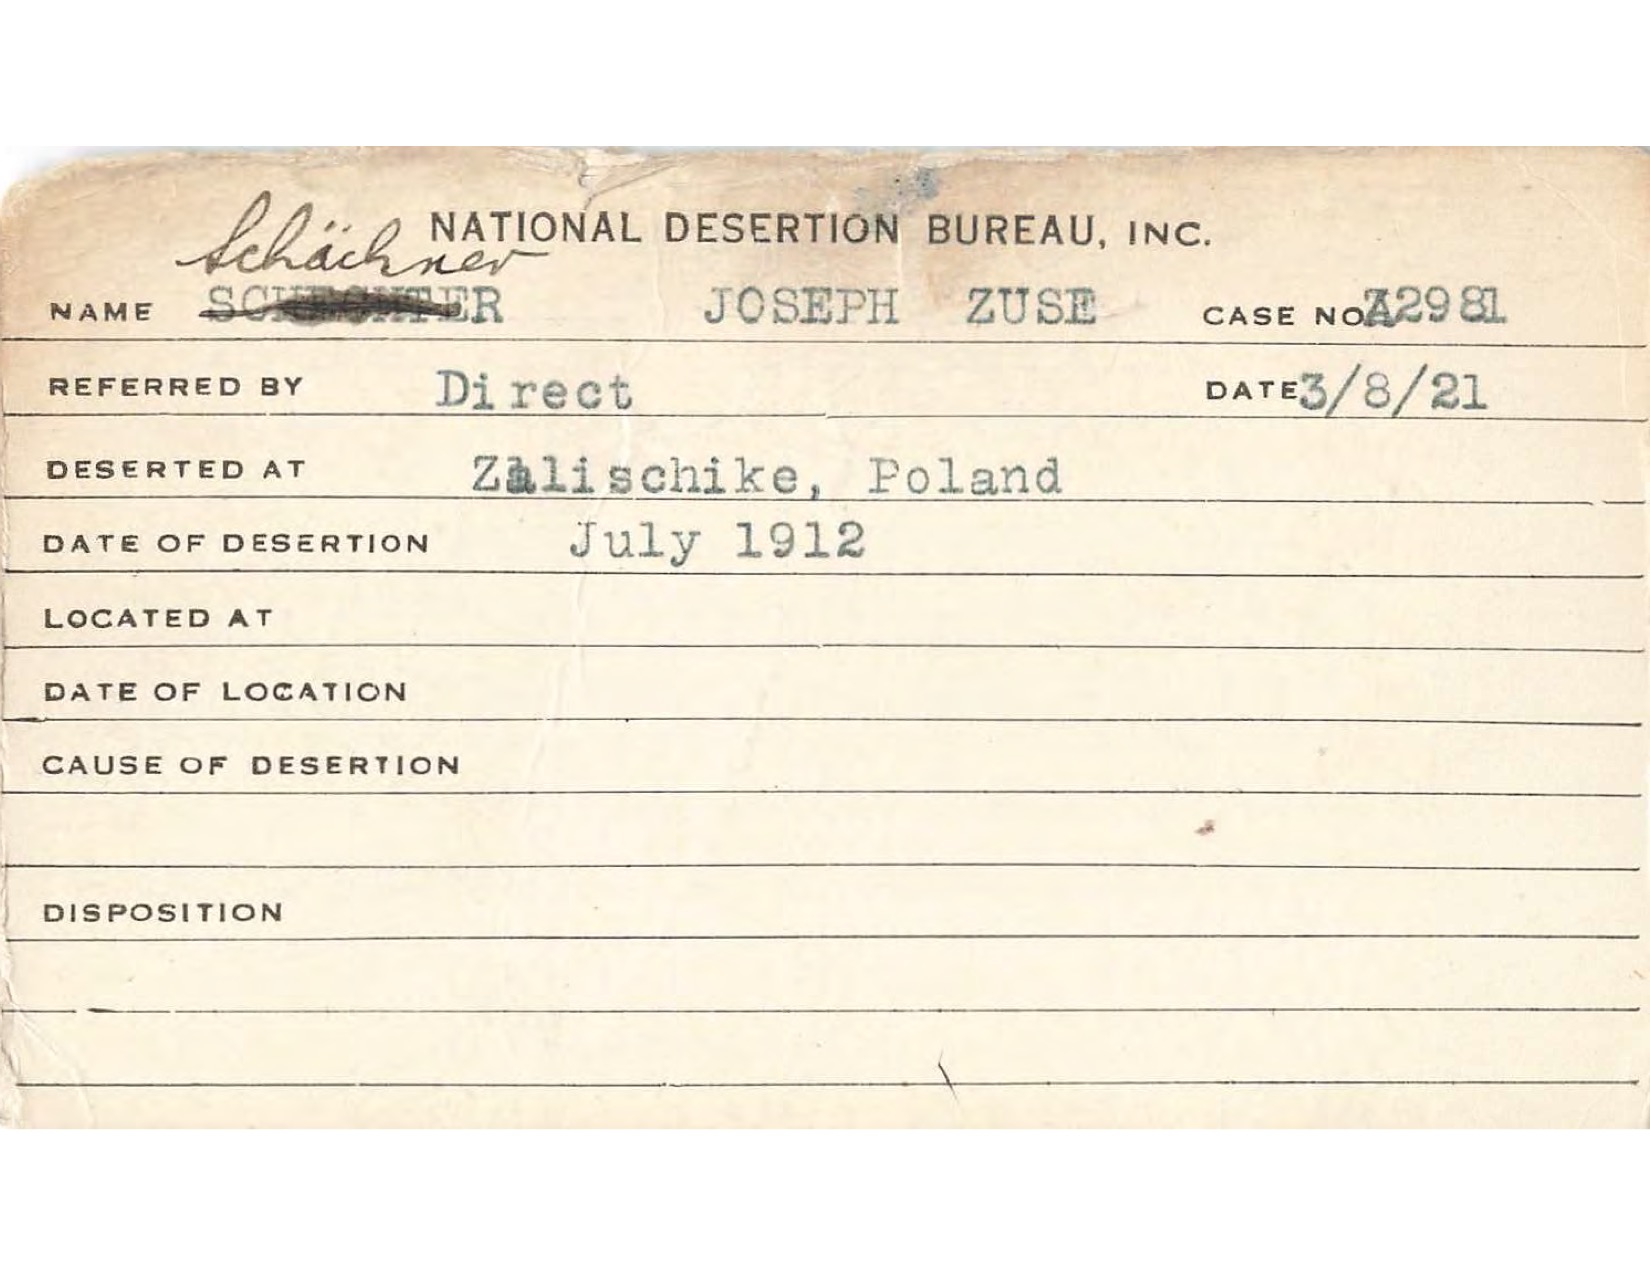 NATIONAL DESERTION BUREAU, INC.
Schächner
NAME SCHECHTER JOSEPH ZUSE CASE NO. A2981
REFERRED BY Direct DATE 3/8/21
DESERTED AT Zalischike, Poland
DATE OF DESERTION July 1912
LOCATED AT
DATE OF LOCATION
CAUSE OF DESERTION
DISPOSITION